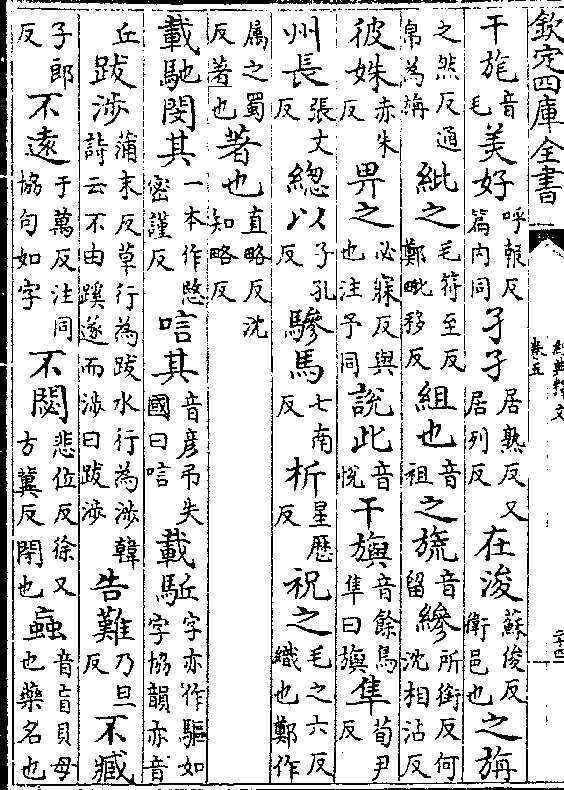 欽定四庫全書
經典釋文
卷五
二十四
干旄音毛美好呼報反篇内同孑孑居熱反又居列反在浚蘇俊反衛邑也之旃
之然反通帛為旃紕之毛符至反鄭毗移反組也音祖之旒音留縿所銜反何沈相沾反
彼姝赤朱反畀之必寐反與也注予同說此音悅干旟音餘鳥隼曰旟隼荀尹反
州長張丈反緫以子孔反驂馬七南反析星歴反祝之毛之六反織也鄭作
属之蜀反著也著也直略反沈知略反
載馳閔其一本作愍密謹反唁其音彦弔失國曰唁載駈字亦作驅如字協韻亦音
丘跋涉蒲末反草行為跋水行為涉韓詩云不由蹊遂而涉曰跋涉告難乃旦反不臧
子郎反不遠于萬反注同協句如字不閟悲位反徐又方冀反閉也蝱音盲貝母也藥名也